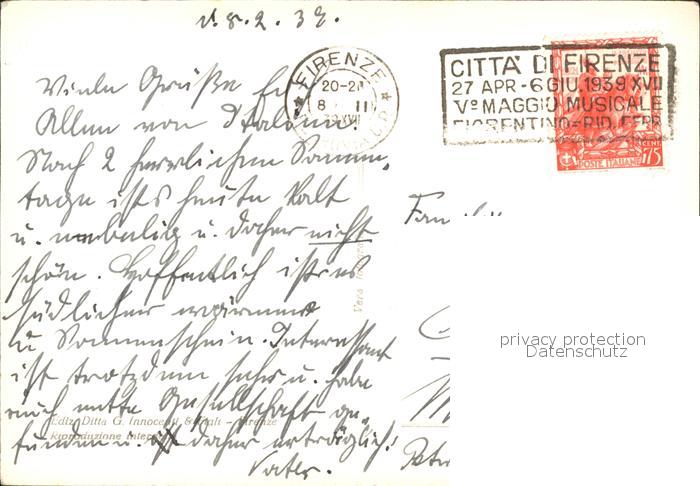 d. 8.2.39.
Viele Grüße Euch
Allen von Italien!
Nach 2 herrlichen Sonnen-
tage ists heute kalt
u. nebelig u. daher nicht
schön. Hoffentlich ist es
südlicher wärmer
u Sonnenschein. Interessant
ist trotzdem sehr u. habe
auch nette Gesellschaft ge-
funden u. ist daher erträglich!
Vater.
FIRENZE
20-21
8 II
39 XVII
CITTA' DI FIRENZE
27 APR - 6 GIU. 1939 XVII
V° MAGGIO MUSICALE
FIORENTINO - RID. FERR.
CENT.
POSTE ITALIANE 75
Vera
Ediz. Ditta G. Innocenti & Figli - Firenze
Riproduzione
Familie
privacy protection
Datenschutz